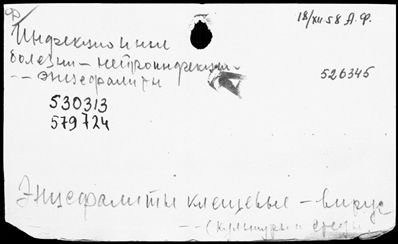 18/XII 58 А.Ф.
Инфекционные
болезни – нейроинфекции –
-- Энцефалиты
526345
530313
579724
Энцефалиты клещевые – вирус
-- (культуры и